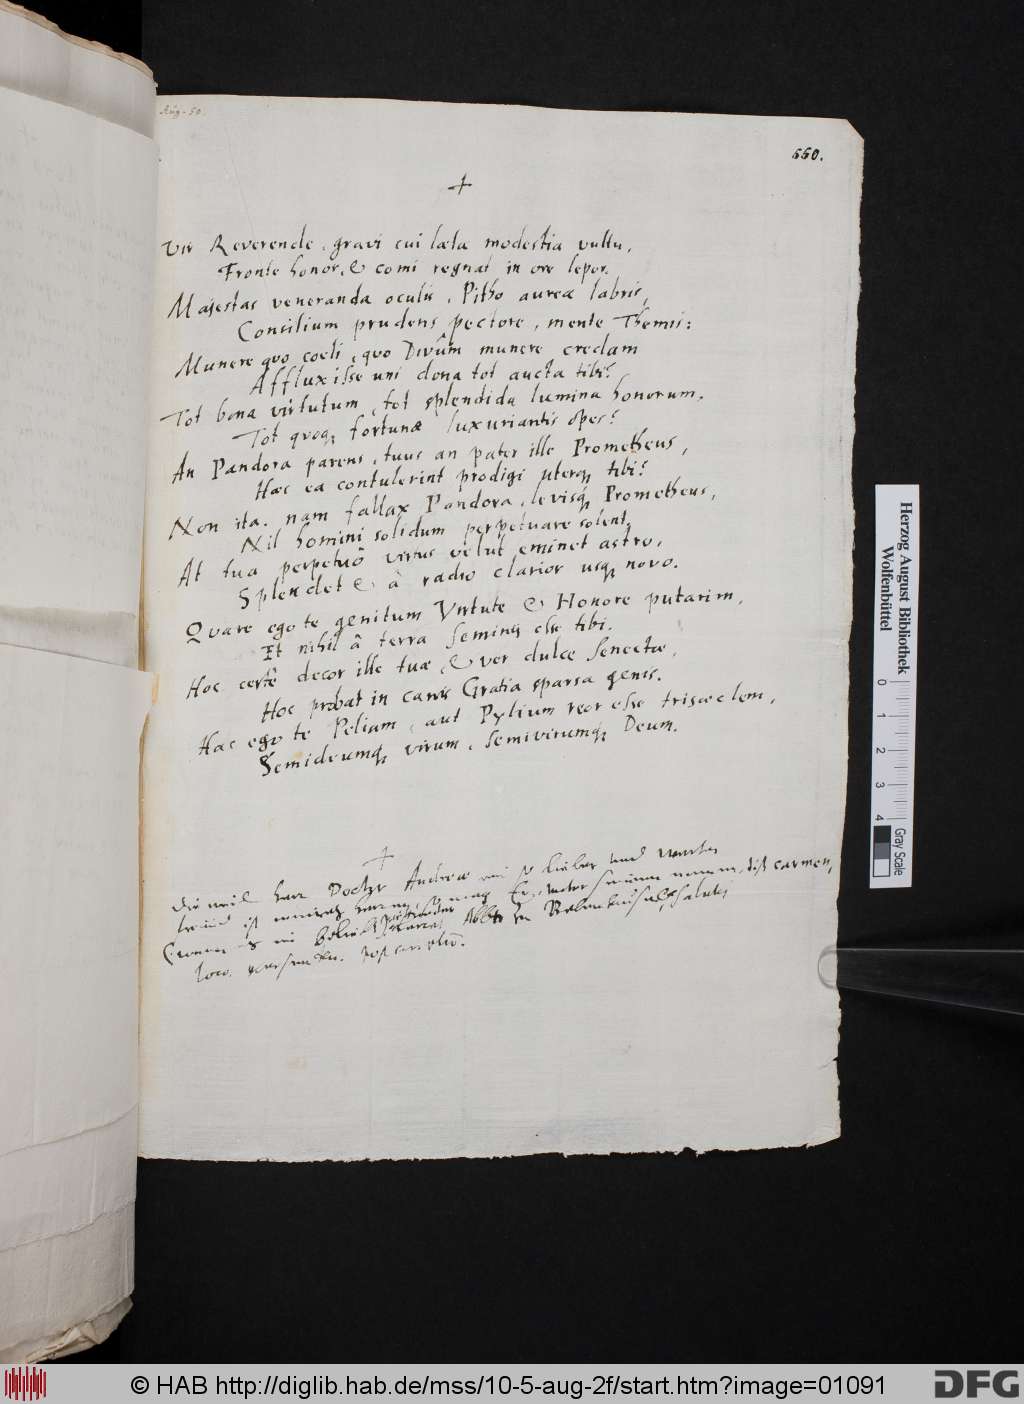 Aug. 50.
550.
Vir Reverende, gravi cui læta modestia vultu,
Fronte honor, & comi regnat in ore lepor.
Majestas veneranda oculis, Pitho aureæ labris,
Consilium prudens pectore, mente Themis:
Munere quo coeli, quo Divûm munere credam
Affluxisse uni dona tot aucta tibi?
Tot bona virtutum, tot splendida lumina honorum,
Tot quoq; fortunæ luxuriantis opes?
An Pandora parens, tuus an pater ille Prometheus,
Hæc ea contulerint prodigi uterq; tibi?
Non ita. nam fallax Pandora, levisq; Prometheus,
Nil homini solidum perpetuare solent,
At tua perpetuò virtus velut eminet astro,
Splendet & à radio clarior usq; novo.
Quare ego te genitum Virtute & Honore putarim,
Et nihil à terra seminis esse tibi.
Hoc certè decor ille tuæ, & ver dulce senectæ,
Hoc probat in canis Gratia sparsa genis.
Hac ego te Peliam, aut Pylium reor esse trisæclem,
Semideumq; virum, semivirumq; Deum.
Die weil herr Doctor Andreæ mein lieber und
freund ist carmen,
Abbt zu salutis
loco.
Herzog August Bibliothek
Wolfenbüttel
0 1 2 3 4
Gray Scale
© HAB http://diglib.hab.de/mss/10-5-aug-2f/start.htm?image=01091
DFG